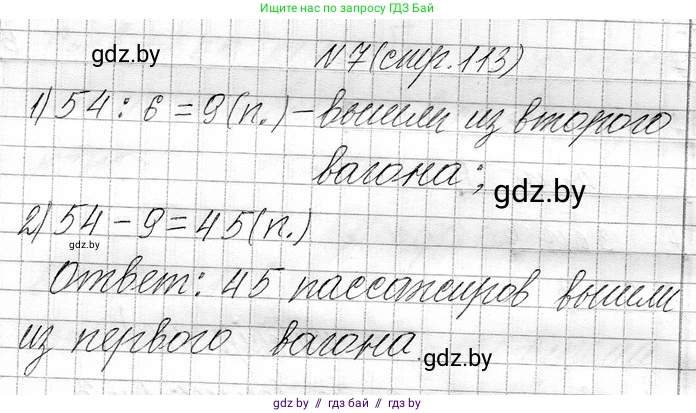 Ищите нас по запросу ГДЗ Бай
gdz.by
N7(стр.113)
1) 54 : 6 = 9(п.) - вышли из второго
вагона;
gdz.by
2) 54 - 9 = 45(п.)
gdz.by
Ответ: 45 пассажиров вышли
из первого вагона.
gdz.by
gdz.by // гдз бай // гдз by